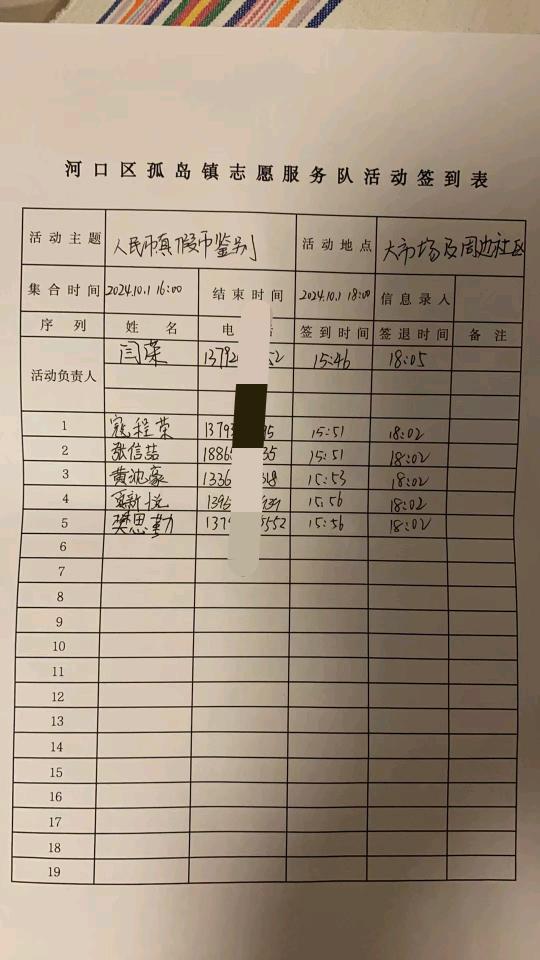 河口区孤岛镇志愿服务队活动签到表
活动主题 人民币真假币鉴别 活动地点 大市场及周边社区
集合时间 2024.10.1 16:00 结束时间 2024.10.1 18:00 信息录人
序列 姓名 电 话 签到时间 签退时间 备注
活动负责人 闫荣 1379 52 15:46 18:05
1 寇程荣 1379 95 15:51 18:02
2 张信喆 1886 35 15:51 18:02
3 黄沈豪 1336 318 15:53 18:02
4 新悦 1395 15:56 18:02
5 樊思勤 137 5552 15:56 18:02
6
7
8
9
10
11
12
13
14
15
16
17
18
19